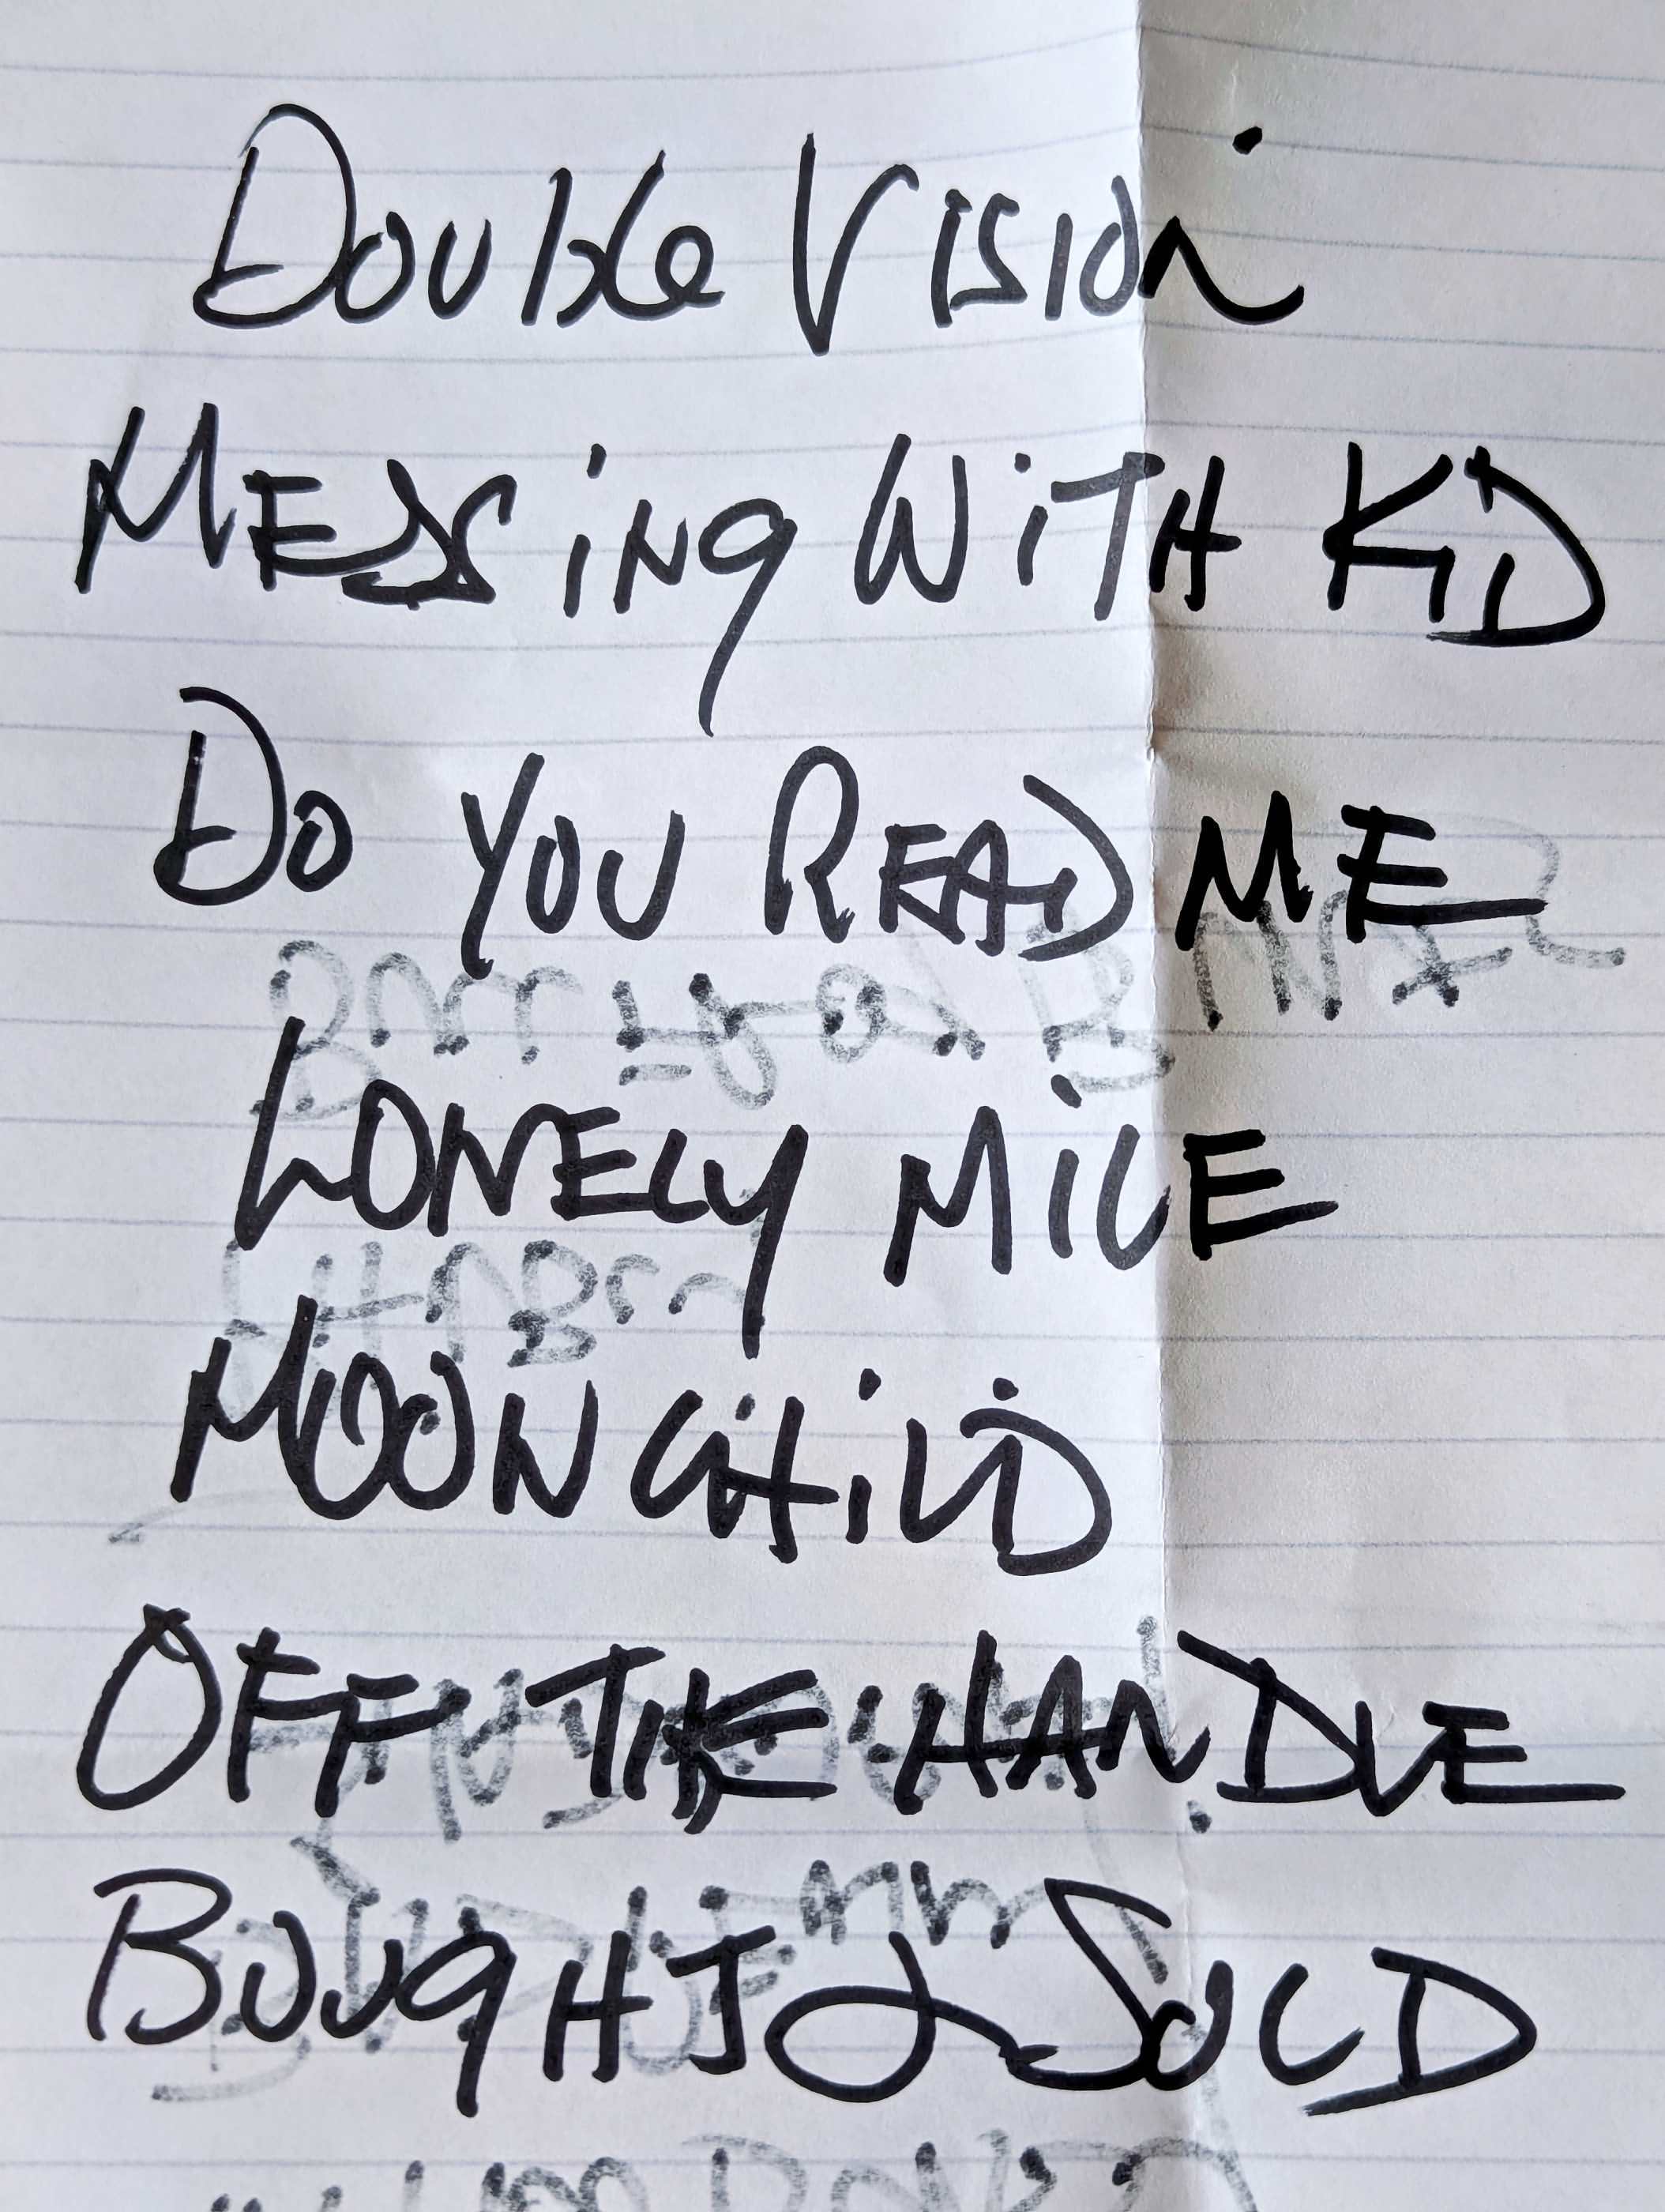 Double Vision
MESSiNg WiTH KiD
Do YOU READ ME
LONELY MiLE
MOONCHiLD
OFF THE HANDLE
BOUgHT & SOLD